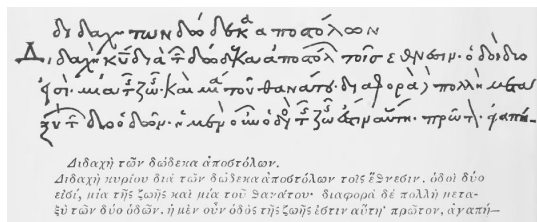 διδαχὴ τῶν δώδεκα ἀποστόλων
Διδαχὴ κῡ διὰ τ̑ δώδεκα ἀποστόλ τοῖς ἔθνεσιν· ὁδοὶ δύο
εἰσὶ· μία τ̑ς ζω̑ς· καὶ μία τοῦ θανάτου· διαφορὰ δὲ πολλὴ μετα
ξὺ τ̑ δύο ὁδῶν· ἡ μὲν οὖν ὁδὸς τ̑ς ζω̑ς ἐστιν αὕτη· πρῶτ· ἀγαπή-
Διδαχὴ τῶν δώδεκα ἀποστόλων.
Διδαχὴ κυρίου διὰ τῶν δώδεκα ἀποστόλων τοῖς ἔθνεσιν. ὁδοὶ δύο
εἰσί, μία τῆς ζωῆς καὶ μία τοῦ θανάτου· διαφορὰ δὲ πολλὴ μετα-
ξὺ τῶν δύο ὁδῶν. ἡ μὲν οὖν ὁδὸς τῆς ζωῆς ἐστιν αὕτη· πρῶτον, ἀγαπή—